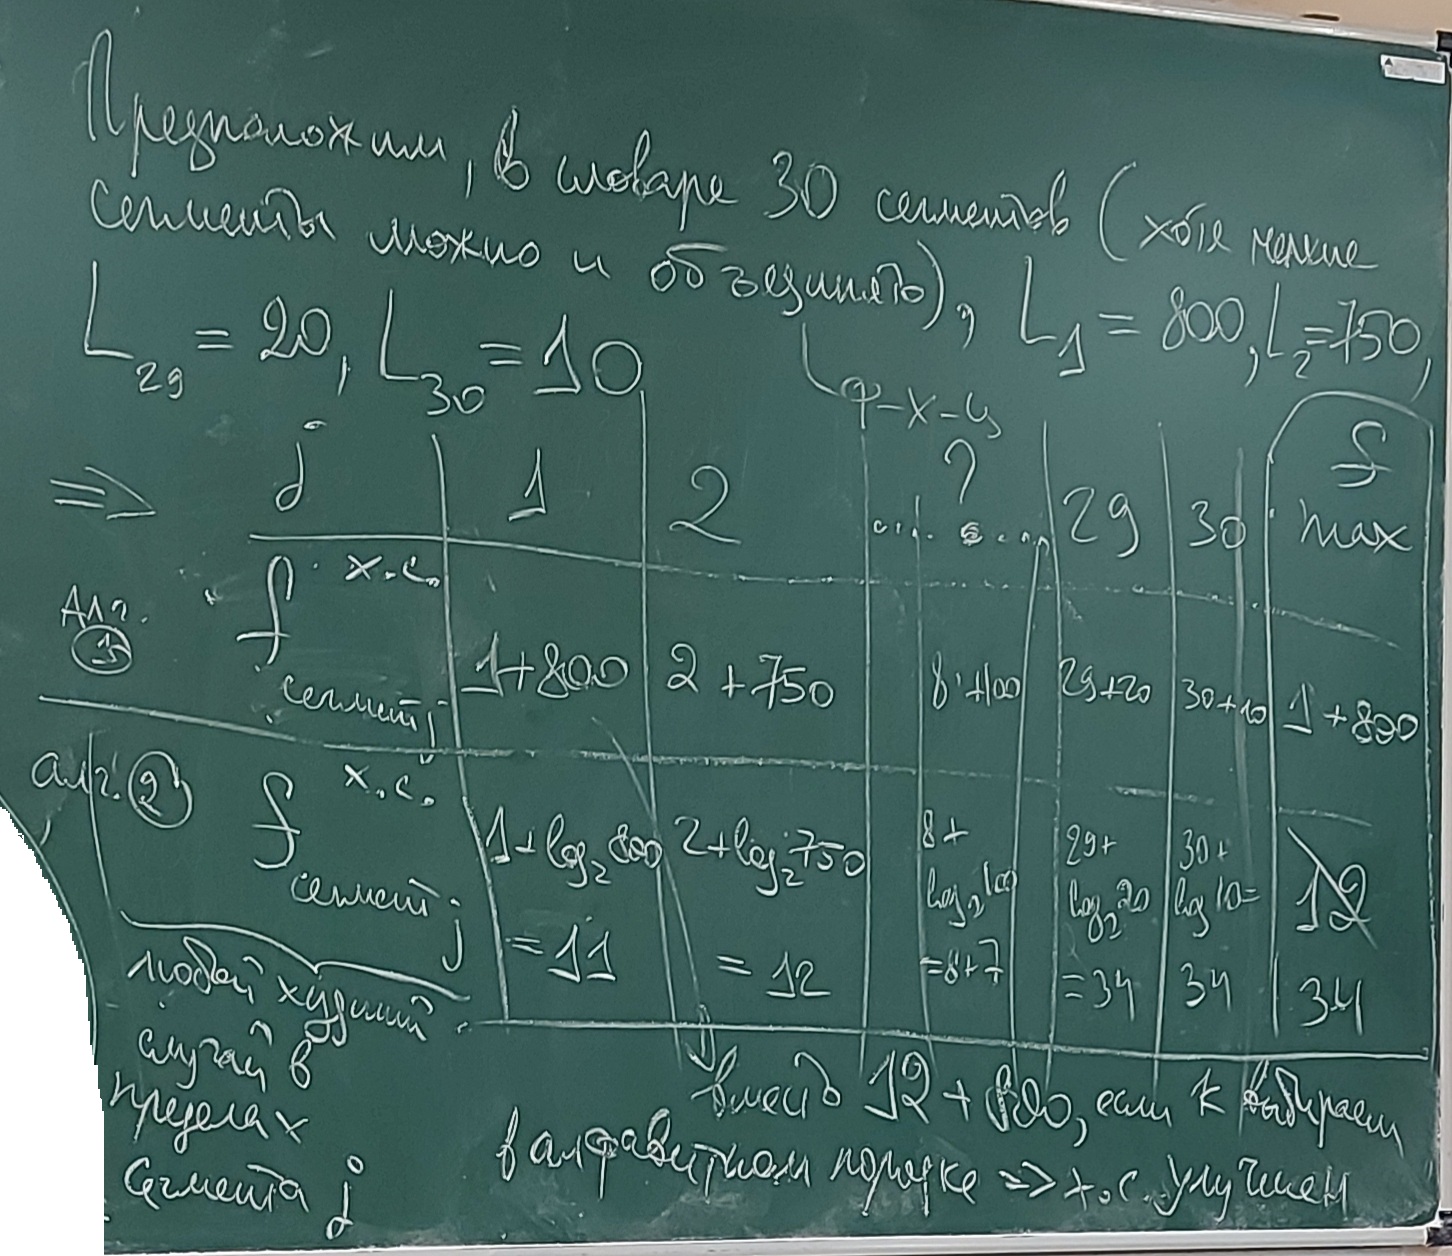 Предположим, в словаре 30 сегментов (хотя мелкие
сегменты можно и объединять), L₁ = 800, L₂=750,
L₂₉ = 20, L₃₀ = 10
ф-х-ц
⇒ j 1 2 ... ? ... 29 30 f max
Алг. ① f х.с. сегмент j 1+800 2+750 8+100 29+20 30+10 1+800
алг. ② f х.с. сегмент j 1+log₂800 =11 2+log₂750 =12 8+ log₂100 =8+7 29+ log₂20 =34 30+ log 10= 34 12 34
любой худший
случай в
пределах
сегмента j
вместо 12+800, если k выбираем
в алфавитном порядке => х.с. улучшен